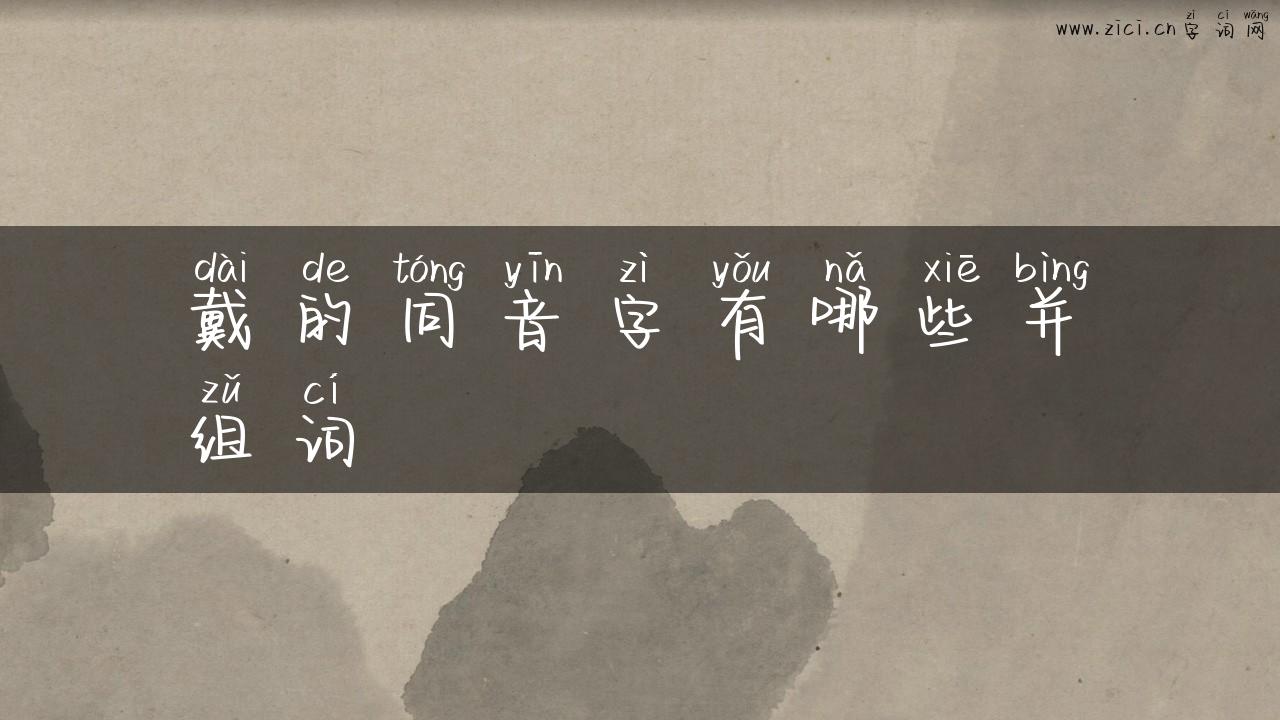 zì cí wǎng
www.zici.cn字词网
dài de tóng yīn zì yǒu nǎ xiē bìng
戴的同音字有哪些并
zǔ cí
组词